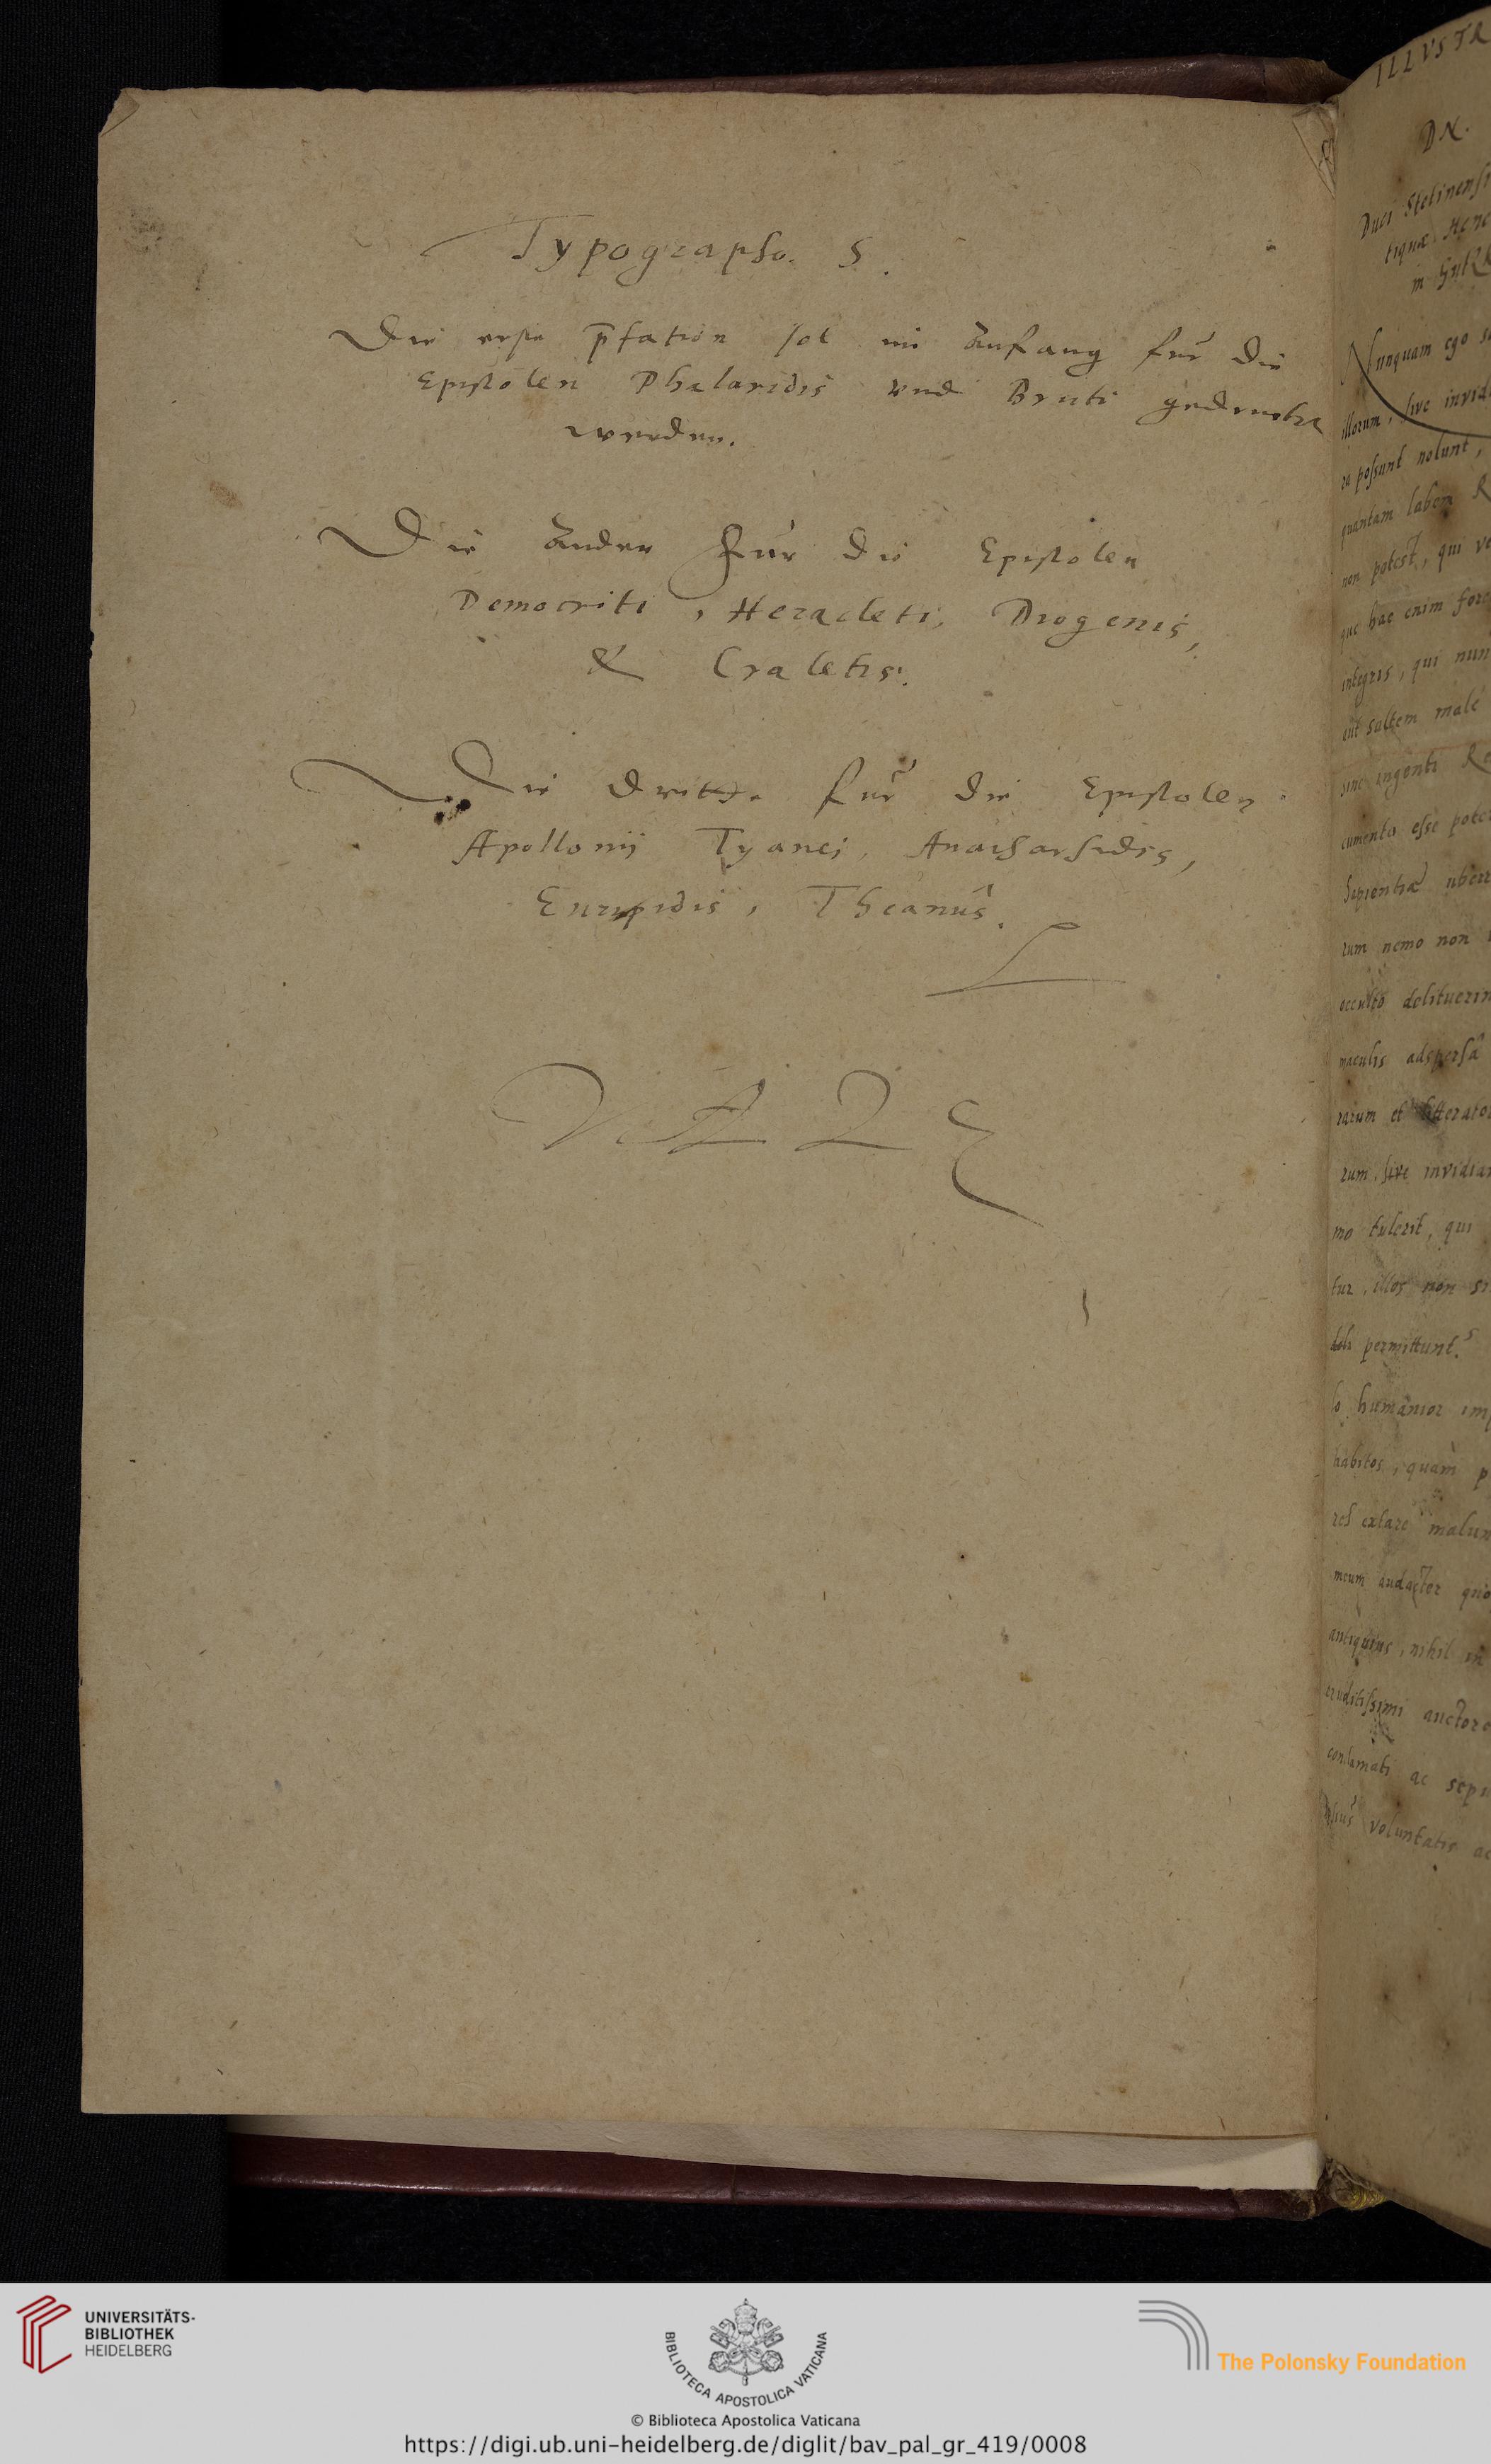 Typographo. S.
Die erste p̄fation sol im anfang für die
Epistolen Phalaridis vnd Bruti gedruckt
werden.
Die ander für die Epistolen
Democriti, Heracleti, Diogenis,
& Cratetis.
Die dritte für die Epistolen
Apollonij Tyanei, Anacharsidis,
Euripidis, Theanûs.
VALE
ILLVSTR
DN.
Duci Stetinensi
tiquæ Hene
Nunquam ego
illorum, sive invid
ea possunt nolunt,
quantam labem
non potest, qui
que hac enim
integris, qui nun
aut saltem male
sine ingenti
cumento esse pote
Sapientiæ uber
rum nemo non
occulto delituerin
maculis adspersâ
rarum et litterato
rum, sive invidia
mo tulerit, qui
tur, illos non
permittunt.
humanior im
habitos, quàm p
res extare malun
meum audacter quo
antiquius, nihil in
eruditissimi auctore
conclamati ac sepu
voluntatis ac
UNIVERSITÄTS-
BIBLIOTHEK
HEIDELBERG
BIBLIOTECA APOSTOLICA VATICANA
The Polonsky Foundation
© Biblioteca Apostolica Vaticana
https://digi.ub.uni-heidelberg.de/diglit/bav_pal_gr_419/0008